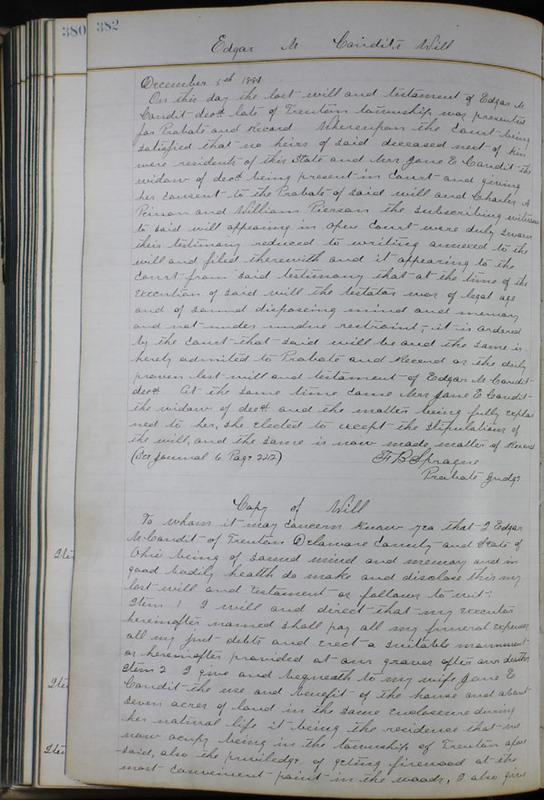 380 382
Edgar M Condit's Will
December 5th 1881
On this day the last will and testament of Edgar M
Condit decd late of Trenton township was presented
for Probate and Record Whereupon the Court being
satisfied that no heirs of said deceased next of kin
were residents of this State and Mrs Jane E Condit the
widow of decd being present in Court and giving
her consent to the Probate of said will and Charles A
and William Pierson the subscribing witnesses
to said will appearing in open Court were duly sworn
their testimony reduced to writing annexed to the
will and filed therewith and it appearing to the
Court from said testimony that at the time of the
execution of said will the testator was of legal age
and of sound disposing mind and memory
and not under undue restraint; it is ordered
by the Court that said will be and the same is
hereby admitted to Probate and Record as the duly
proven last will and testament of Edgar M Condit
decd At the same time came Mrs Jane E Condit
the widow of decd and the matter being fully explai
ned to her, she elected to accept the stipulations of
the will, and the same is now made, matter of Record
(See Journal 6 Page 222) F B Sprague
Probate Judge
Copy of Will
To whom it may concern Know yea that I Edgar
M Condit of Trenton Delaware County and State of
Ite
Ohio being of sound mind and memory and in
good bodily health do make and disclose this my
last will and testament as follows to wit:
Item 1 I will and direct that my executor
hereinafter named shall pay all my funeral expenses
all my just debts and erect a suitable monument
as hereinafter provided at our graves after our deaths
Item 2 I give and bequeath to my wife Jane E
Ite
Condit the use and benefit of the house and about
seven acres of land in the same enclosure during
her natural life it being the residence that we
now occupy being in the township of Trenton afore
Ite
said, also the priviledge of getting firewood at the
most convenient point in the woods, I also give